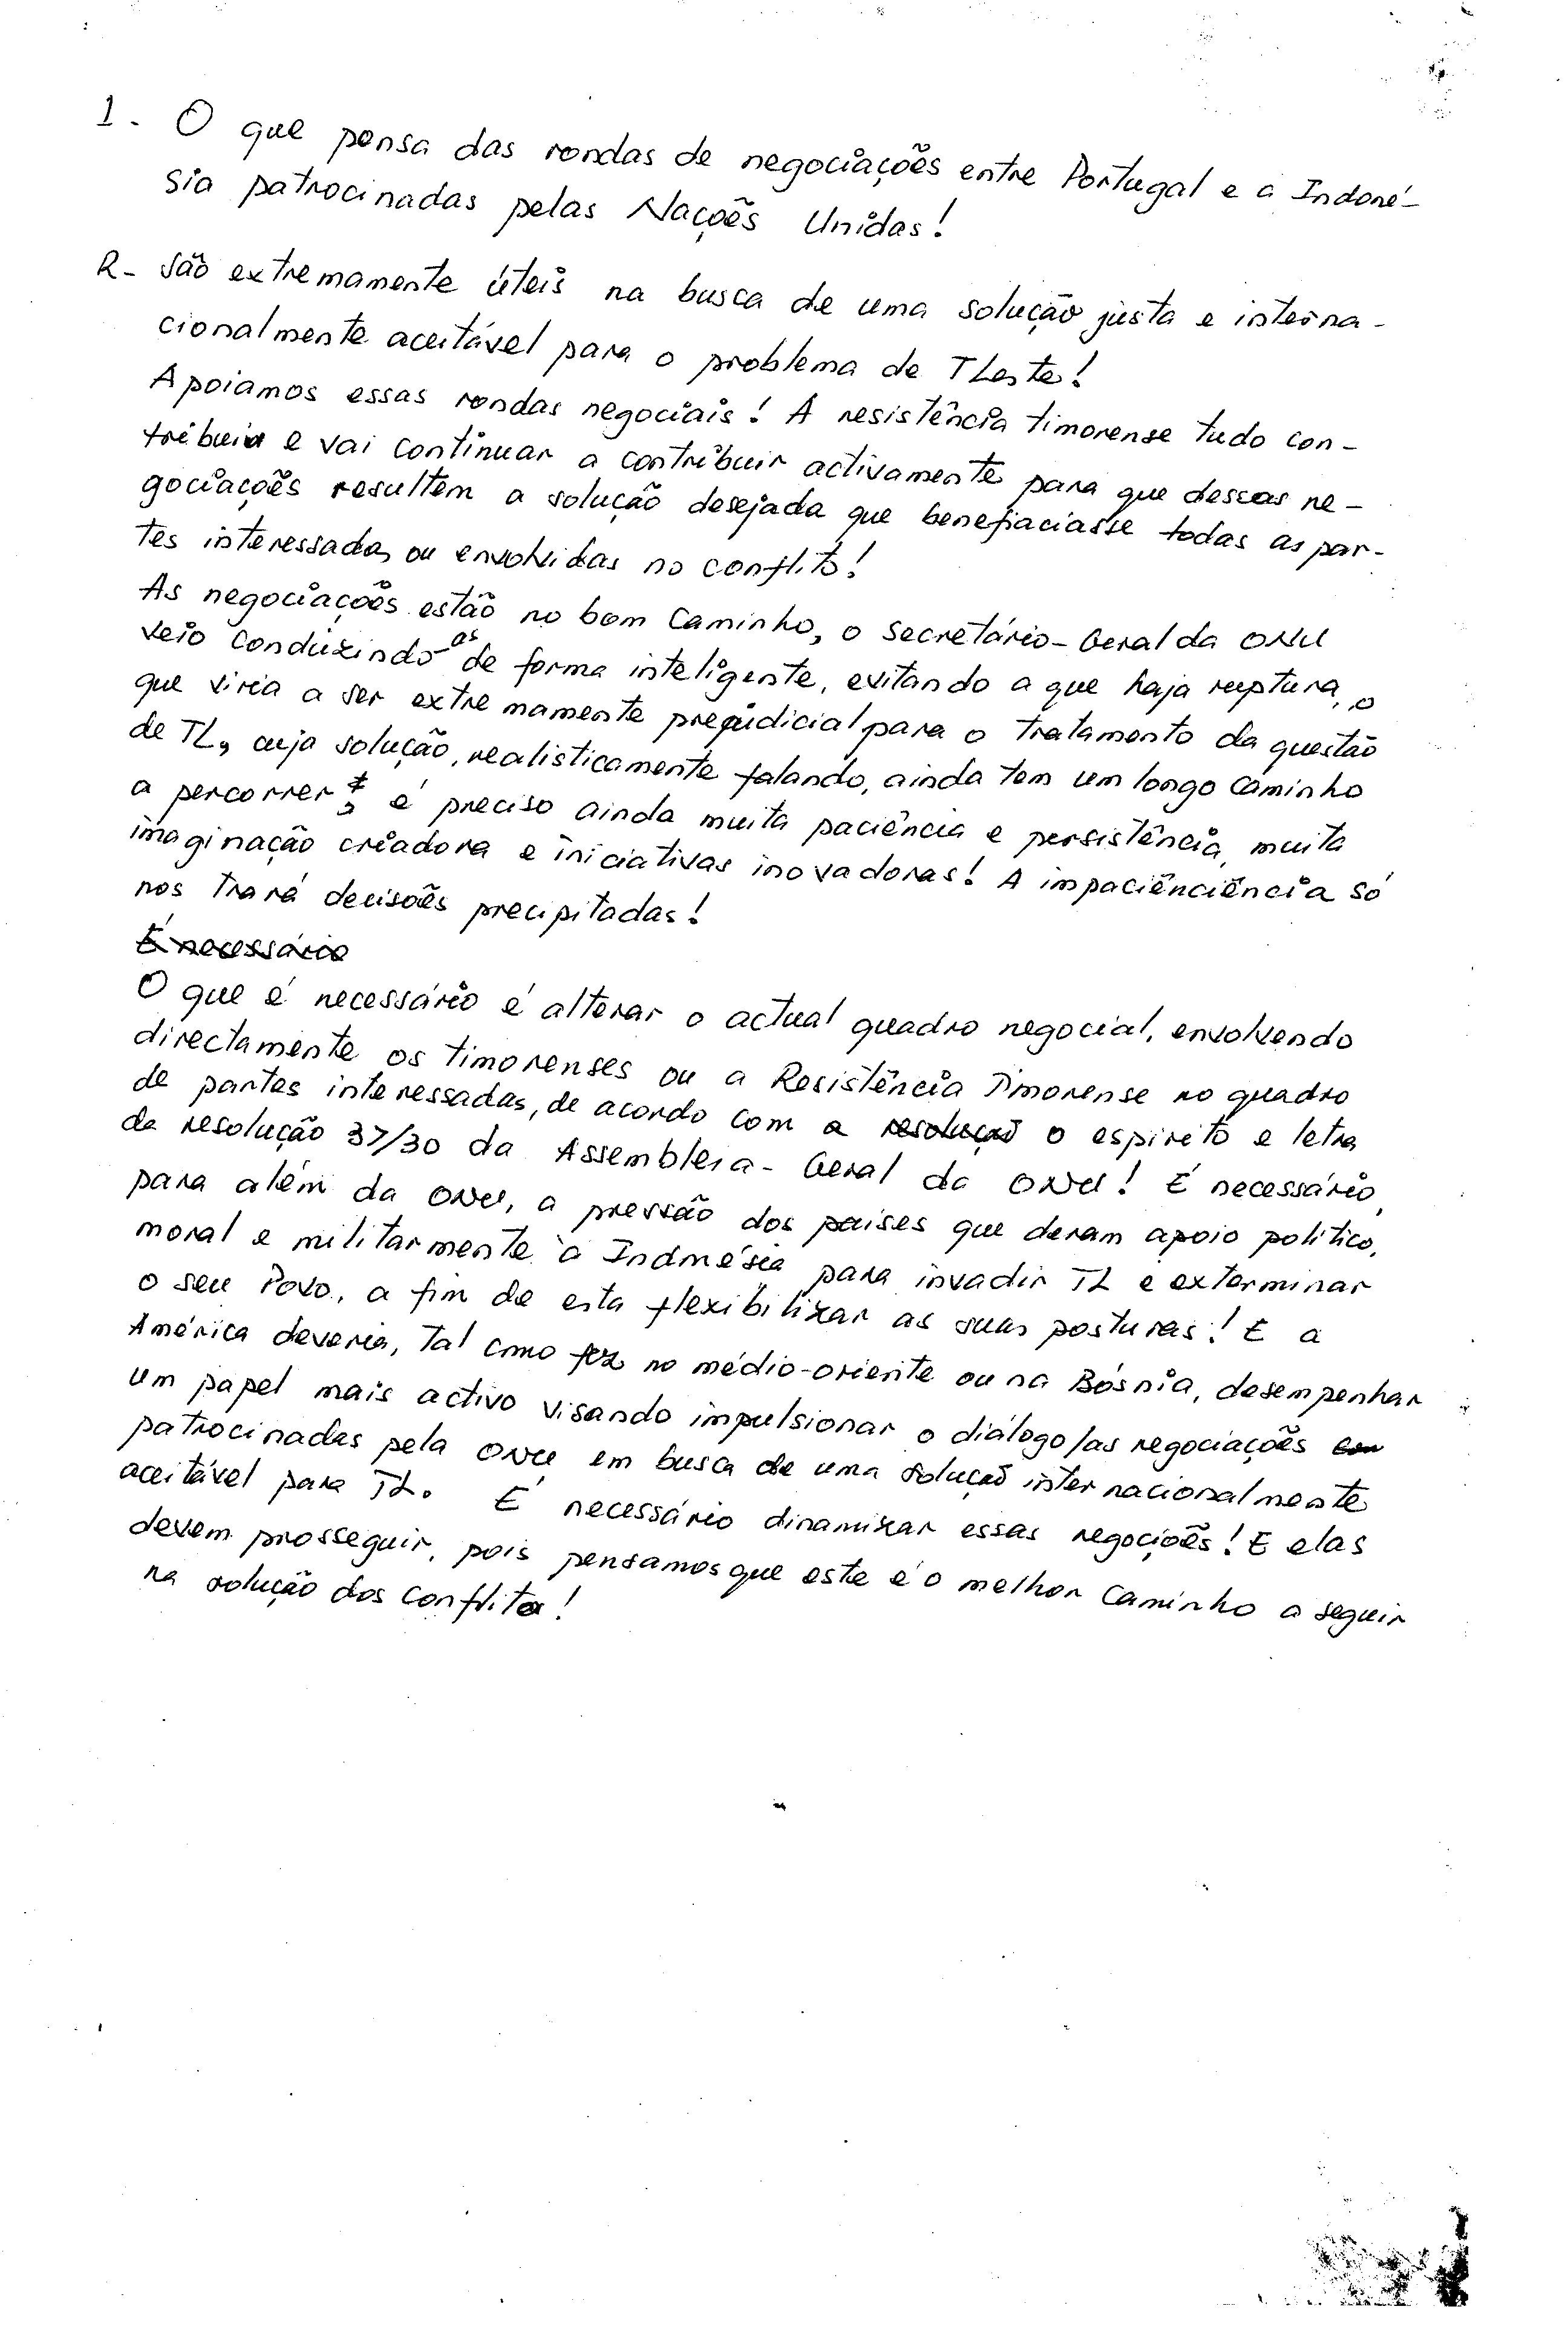 1. O que pensa das rondas de negociações entre Portugal e a Indoné-
sia patrocinadas pelas Nações Unidas!
R- São extremamente úteis na busca de uma solução justa e interna-
cionalmente aceitável para o problema de TLeste!
Apoiamos essas rondas negociais! A resistência timorense tudo con-
tribuiu e vai continuar a contribuir activamente para que dessas ne-
gociações resultem a solução desejada que benefiaciasse todas as par-
tes interessadas ou envolvidas no conflito!
As negociações estão no bom caminho, o Secretário-Geral da ONU
veio conduzindo-as de forma inteligente, evitando a que haja ruptura, o
que viria a ser extremamente prejudicial para o tratamento da questão
de TL, cuja solução, realisticamente falando, ainda tem um longo caminho
a percorrer; é preciso ainda muita paciência e persistência, muita
imaginação criadora e iniciativas inovadoras! A impaciênciência só
nos trará decisões precipitadas!
É necessário
O que é necessário é alterar o actual quadro negocial, envolvendo
directamente os timorenses ou a Resistência Timorense no quadro
de partes interessadas, de acordo com a resolução o espirito e letra
da resolução 37/30 da Assembleia-Geral da ONU! É necessário,
para além da ONU, a pressão dos paises que deram apoio politico,
moral e militarmente à Indonésia para invadir TL e exterminar
o seu Povo, a fim de esta flexibilizar as suas posturas! E a
América deveria, tal como fez no médio-oriente ou na Bósnia, desempenhar
um papel mais activo visando impulsionar o diálogo/as negociações em
patrocinadas pela ONU em busca de uma solução internacionalmente
aceitável para TL. É necessário dinamizar essas negocições! E elas
devem prosseguir, pois pensamos que este é o melhor caminho a seguir
na solução dos conflito!